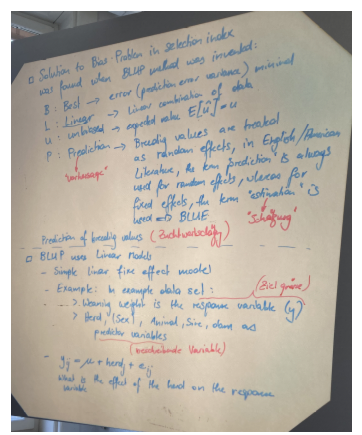 □ Solution to Bias-Problem in selection index
was found when BLUP method was invented:
B : Best → error (prediction error variance) minimal
L : Linear → Linear combination of data
U : unbiased → expected value E[û] = u
P : Prediction → Breeding values are treated
as random effects, in English/American
Literature, the term "prediction" is always
used for random effects, whereas for
fixed effects, the term "estimation" is
used ⇒ BLUE.
"Vorhersage"
"Schätzung"
Prediction of breeding values (Zuchtwertschätzg)
□ BLUP uses Linear Models
- Simple linear fixe effect model
- Example: In example data set: (Zielgrösse)
--> Weaning weight is the response variable (y)
> Herd, (Sex), Animal, Sire, dam are
predictor variables
(beschreibende Variable)
- yij = μ + herdj + eij
What is the effect of the herd on the response
variable